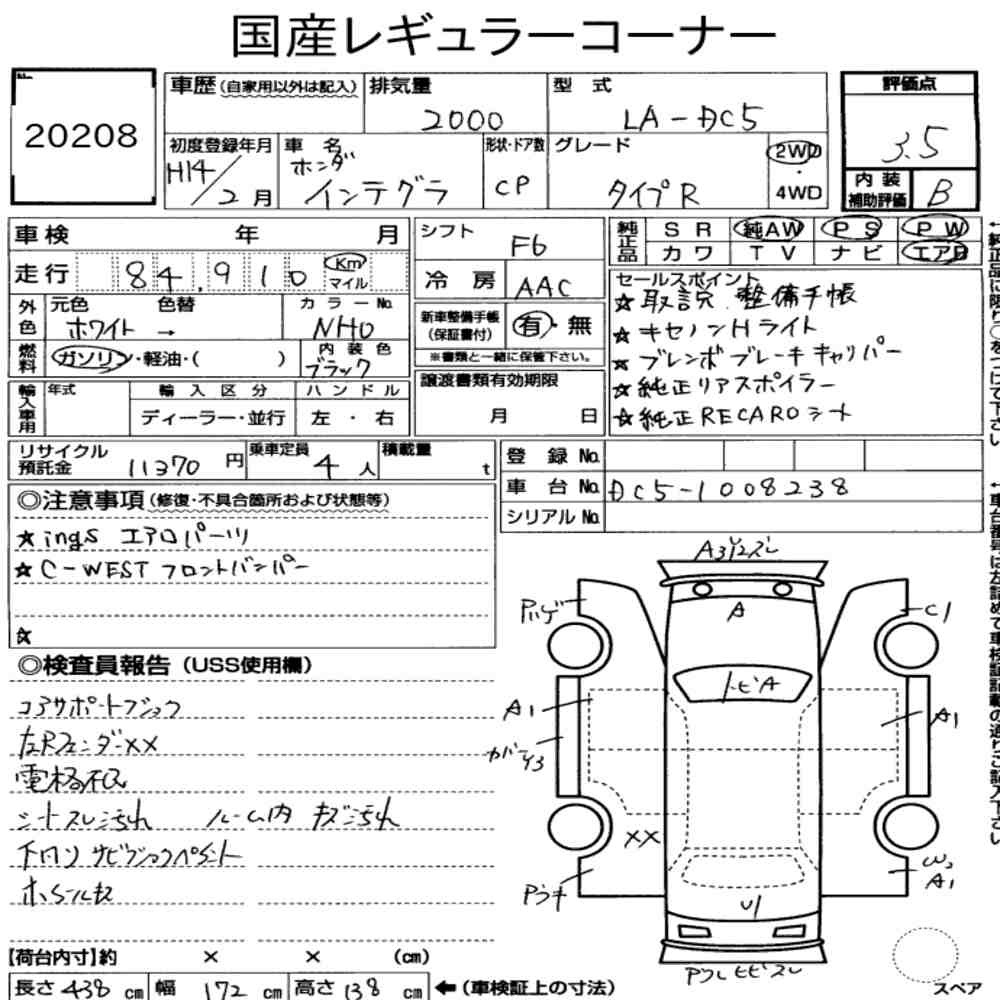 国産レギュラーコーナー
20208
車歴(自家用以外は記入)
排気量
2000
型式
LA-DC5
評価点
3.5
初度登録年月
H14/2月
車名
ホンダ
インテグラ
形状・ドア数
CP
グレード
タイプR
2WD
・
4WD
内装
補助評価
B
車検 年 月
走行 84,910 Km
マイル
シフト
F6
冷房 AAC
純正品
SR 純AW PS PW
カワ TV ナビ エアB
外色
元色 色替
ホワイト →
カラーNo.
NH0
燃料
ガソリン・軽油・( )
内装色
ブラック
新車整備手帳
(保証書付)
有・無
※書類と一緒に保管下さい。
セールスポイント
☆取説 整備手帳
☆キセノンHライト
☆ブレンボブレーキキャリパー
☆純正リアスポイラー
☆純正RECAROシート
輸入車用
年式
輸入区分
ディーラー・並行
ハンドル
左・右
譲渡書類有効期限
月 日
リサイクル
預託金 11370 円
乗車定員
4人
積載量
t
登録No.
車台No. DC5-1008238
シリアルNo.
◎注意事項(修復・不具合箇所および状態等)
☆ingS エアロパーツ
☆C-WEST フロントバンパー
☆
◎検査員報告(USS使用欄)
コアサポート
左RフェンダーXX
シートスレ汚れ ルーム内 キズ汚れ
下回り サビ
A
C1
A1
A1
XX
A1
U1
【荷台内寸】約 × × (cm)
長さ 438 cm 幅 172 cm 高さ 138 cm ←(車検証上の寸法)
スペア
←純正品に限り○をつけて下さい
←車台番号は左詰めで車検証記載の通りご記入下さい